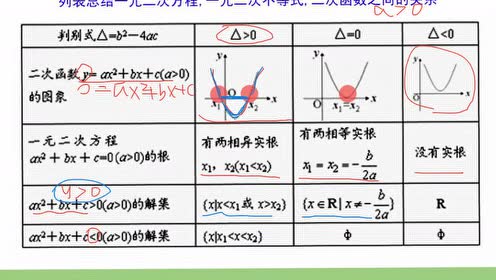 列表总结一元二次方程,一元二次不等式,二次函数之间的关系
a>0
判别式△=b²-4ac △>0 △=0 △<0
二次函数 y=ax²+bx+c(a>0)
的图象
0=ax²+bx+c
y y y
x₁ O x₂ x O x₁=x₂ x O x
一元二次方程
ax²+bx+c=0(a>0)的根
有两相异实根
x₁, x₂(x₁<x₂)
有两相等实根
x₁=x₂=-b/2a
没有实根
y>0
ax²+bx+c>0(a>0)的解集 {x|x<x₁或 x>x₂} {x∈R|x≠-b/2a} R
ax²+bx+c<0(a>0)的解集 {x|x₁<x<x₂} Φ Φ